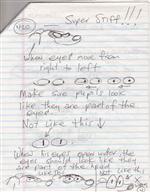 Super Stiff!!!
When eyes move from
right to left.
Make sure pupils look
like they are part of the
eyes.
Not Like this ↓
When his eyes
the eyes should look like they
are part of the head.
Like this
Not like this